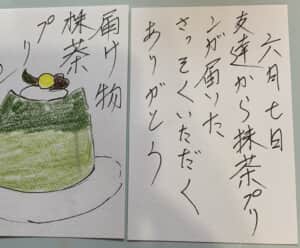 六月七日
友達から抹茶プリ
ンが届いた
さっそくいただく
ありがとう
届け物
抹茶
プリ
ン